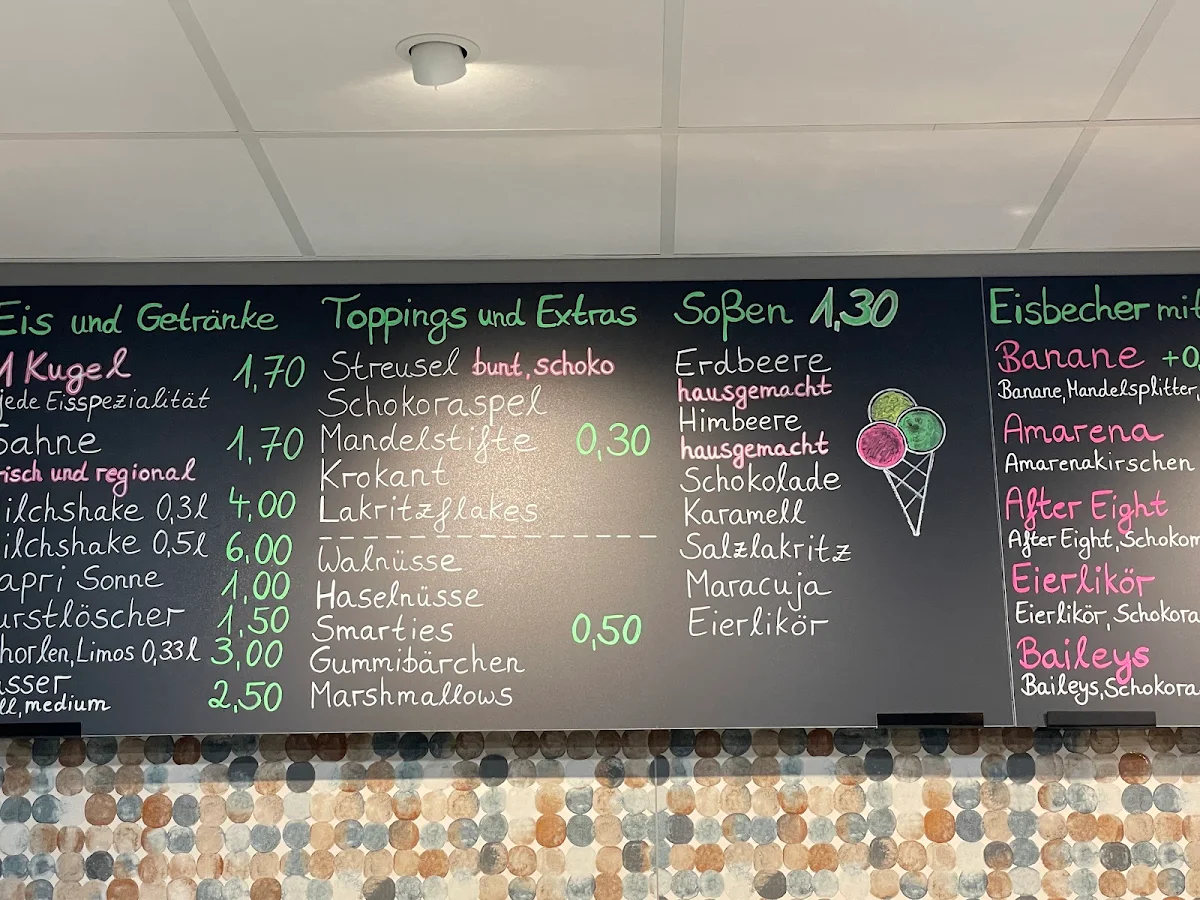 Eis und Getränke
1 Kugel 1,70
jede Eisspezialität
Sahne 1,70
risch und regional
ilchshake 0,3l 4,00
ilchshake 0,5l 6,00
apri Sonne 1,00
urstlöscher 1,50
horlen, Limos 0,33l 3,00
asser 2,50
ll, medium
Toppings und Extras
Streusel bunt, schoko
Schokoraspel
Mandelstifte 0,30
Krokant
Lakritzflakes
Walnüsse
Haselnüsse
Smarties 0,50
Gummibärchen
Marshmallows
Soßen 1,30
Erdbeere
hausgemacht
Himbeere
hausgemacht
Schokolade
Karamell
Salzlakritz
Maracuja
Eierlikör
Eisbecher mit
Banane +0,
Banane, Mandelsplitter,
Amarena
Amarenakirschen
After Eight
After Eight, Schokom
Eierlikör
Eierlikör, Schokora
Baileys
Baileys, Schokora